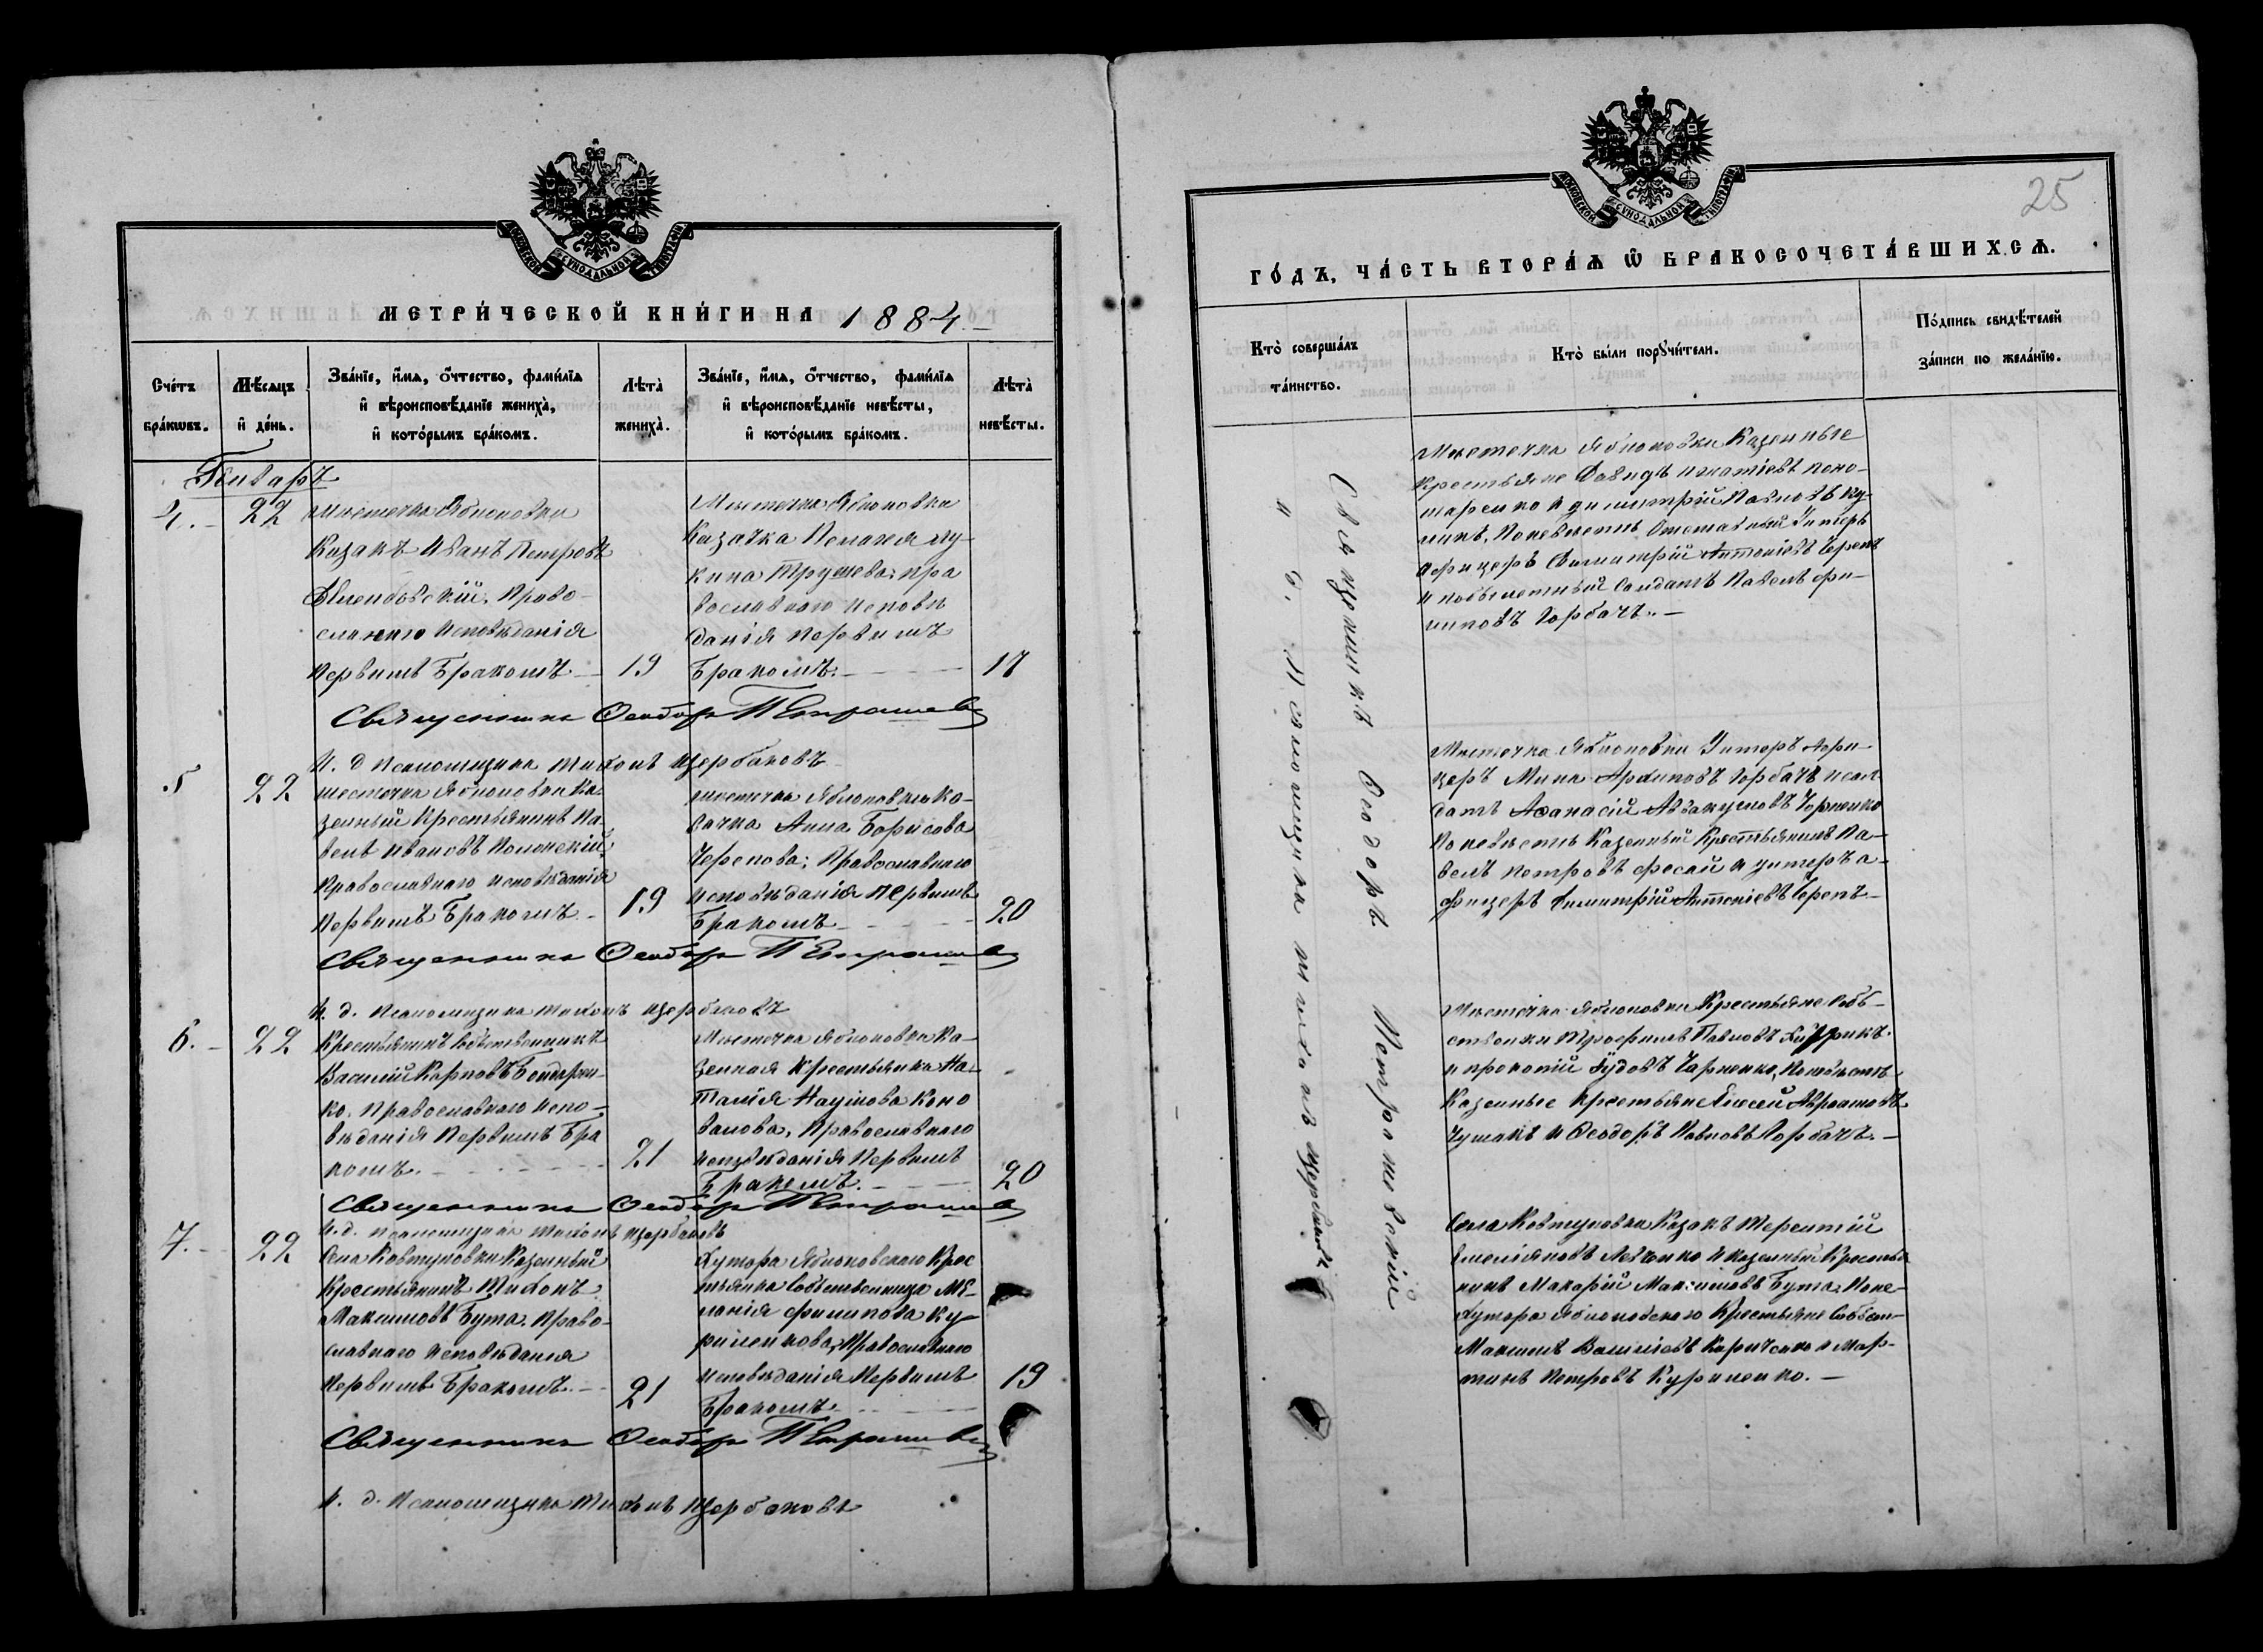 МОСКОВСКОЙ СУНОДАЛЬНОЙ ТИПОГРАФІИ
МЕТРИ́ЧЕСКОЙ КНИ́ГИ НА 1884
Сче́тъ бра́кѡвъ.
Мѣ́сяцъ и҆ де́нь.
Зва́нїе, и҆́мѧ, ѻ҆́тчество, фами́лїѧ и҆ вѣроисповѣ́данїе жениха̀, и҆ кото́рымъ бра́комъ.
Лѣта̀ жениха̀.
Зва́нїе, и҆́мѧ, ѻ҆́тчество, фами́лїѧ и҆ вѣроисповѣ́данїе невѣ́сты, и҆ кото́рымъ бра́комъ.
Лѣта̀ невѣ́сты.
Генваръ
4. 22
Мѣстечка Яблоновки
Казакъ Иванъ Петровъ
Право-
славнаго исповѣданія
первимъ бракомъ 19
Мѣстечка Яблоновки
Казачка Пелагея Лу-
кина Трушева; пра
вославнаго исповѣ
данія первимъ
бракомъ. 17
Священникъ Ѳеодоръ
И. д. псаломщика Тихонъ Щербаковъ
5 22
мѣстечка Яблоновки Ка-
зенный Крестьянинъ Па-
велъ Ивановъ Полонскій,
Православнаго исповѣданія
первимъ бракомъ 19
мѣстечка Яблоновки Ка-
зачка Анна Борисова
Черепова; Православнаго
исповѣданія первимъ
бракомъ 20
Священникъ Ѳеодоръ
И. д. псаломщика Тихонъ Щербаковъ
6. 22
Крестьянинъ собственникъ
Василій Карповъ Бондарен-
ко, Православнаго испо-
вѣданія первимъ бра
комъ. 21
Мѣстечка Яблоновки Ка-
зенная Крестьянка На-
талія Наумова Коно
валова, Православнаго
исповѣданія первимъ
бракомъ. 20
Священникъ Ѳеодоръ
И. д. псаломщика Тихонъ Щербаковъ
7. 22
Села Ковтуновки Казенный
Крестьянинъ Тихонъ
Максимовъ Бута, Право-
славнаго исповѣданія
первимъ бракомъ. 21
Хутора Яблоновскаго Крес
тьянка собственница Ме-
ланія Филипова Ку-
риленкова, Православнаго
исповѣданія первимъ
бракомъ 19
Священникъ Ѳеодоръ
И. д. псаломщика Тихонъ Щербаковъ
МОСКОВСКОЙ СУНОДАЛЬНОЙ ТИПОГРАФІИ
25
ГО́ДЪ, ЧА́СТЬ ВТОРА́Ѧ Ѽ БРАКОСОЧЕТА́ВШИХСѦ.
Кто̀ соверша́лъ та́инство.
Кто̀ бы́ли порꙋчи́тели.
По́дпись свидѣ́телей за́писи по жела́нїю.
Священникъ Ѳеодоръ
и д. псаломщика Тихонъ Щербаковъ
Мѣстечка Яблоновки Казенные
Крестьяне Давидъ Игнатіевъ Поно-
маренко и Димитрій Павловъ Ку-
По невѣстѣ Отставный Унтеръ
афицеръ Димитрій Антоніевъ Черепъ
и Солдатъ Павелъ Фи-
липовъ Горбачъ.
Мѣстечка Яблоновки Унтеръ Афи-
церъ Мина Архиповъ Горбачъ и сол
датъ Аѳанасій Аввакумовъ
По невѣстѣ Казенный Крестьянинъ Па-
велъ Петровъ и унтеръ а-
фицеръ Димитрій Антоніевъ Черепъ
Мѣстечка Яблоновки Крестьяне Собъ-
ственики Трофимъ Павловъ
и Прокопій По невѣстѣ
Казенные Крестьяне Алексей
и Ѳеодоръ Павловъ Горбачъ.
Села Ковтуновки Казакъ Терентій
Емеліяновъ Левченко и казенный Крестья
нинъ Макарій Максимовъ Бута. По не-
Хутора Яблоновскаго Крестьяне Собствен-
Максимъ и Мар-
тинъ Петровъ Куриленко.